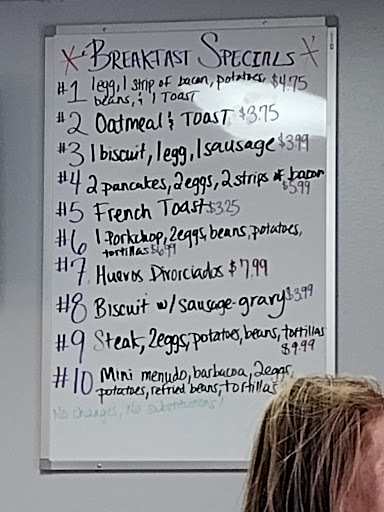 * BREAKFAST SPECIALS *
#1 1egg, 1 strip of bacon, potatoes, $4.75
beans, & 1 Toast
#2 Oatmeal & TOAST $3.75
#3 1 biscuit, 1 egg, 1 sausage $3.99
#4 2 pancakes, 2 eggs, 2 strips of bacon
$5.99
#5 French Toast $3.25
#6 1 Porkchop, 2eggs, beans, potatoes,
tortillas $6.99
#7 Huevos Divorciados $7.99
#8 Biscuit w/ sausage-gravy $3.99
#9 Steak, 2eggs, potatoes, beans, tortillas
$9.99
#10 Mini menudo, barbacoa, 2eggs,
potatoes, refried beans, tortillas
No changes, No substitutions!